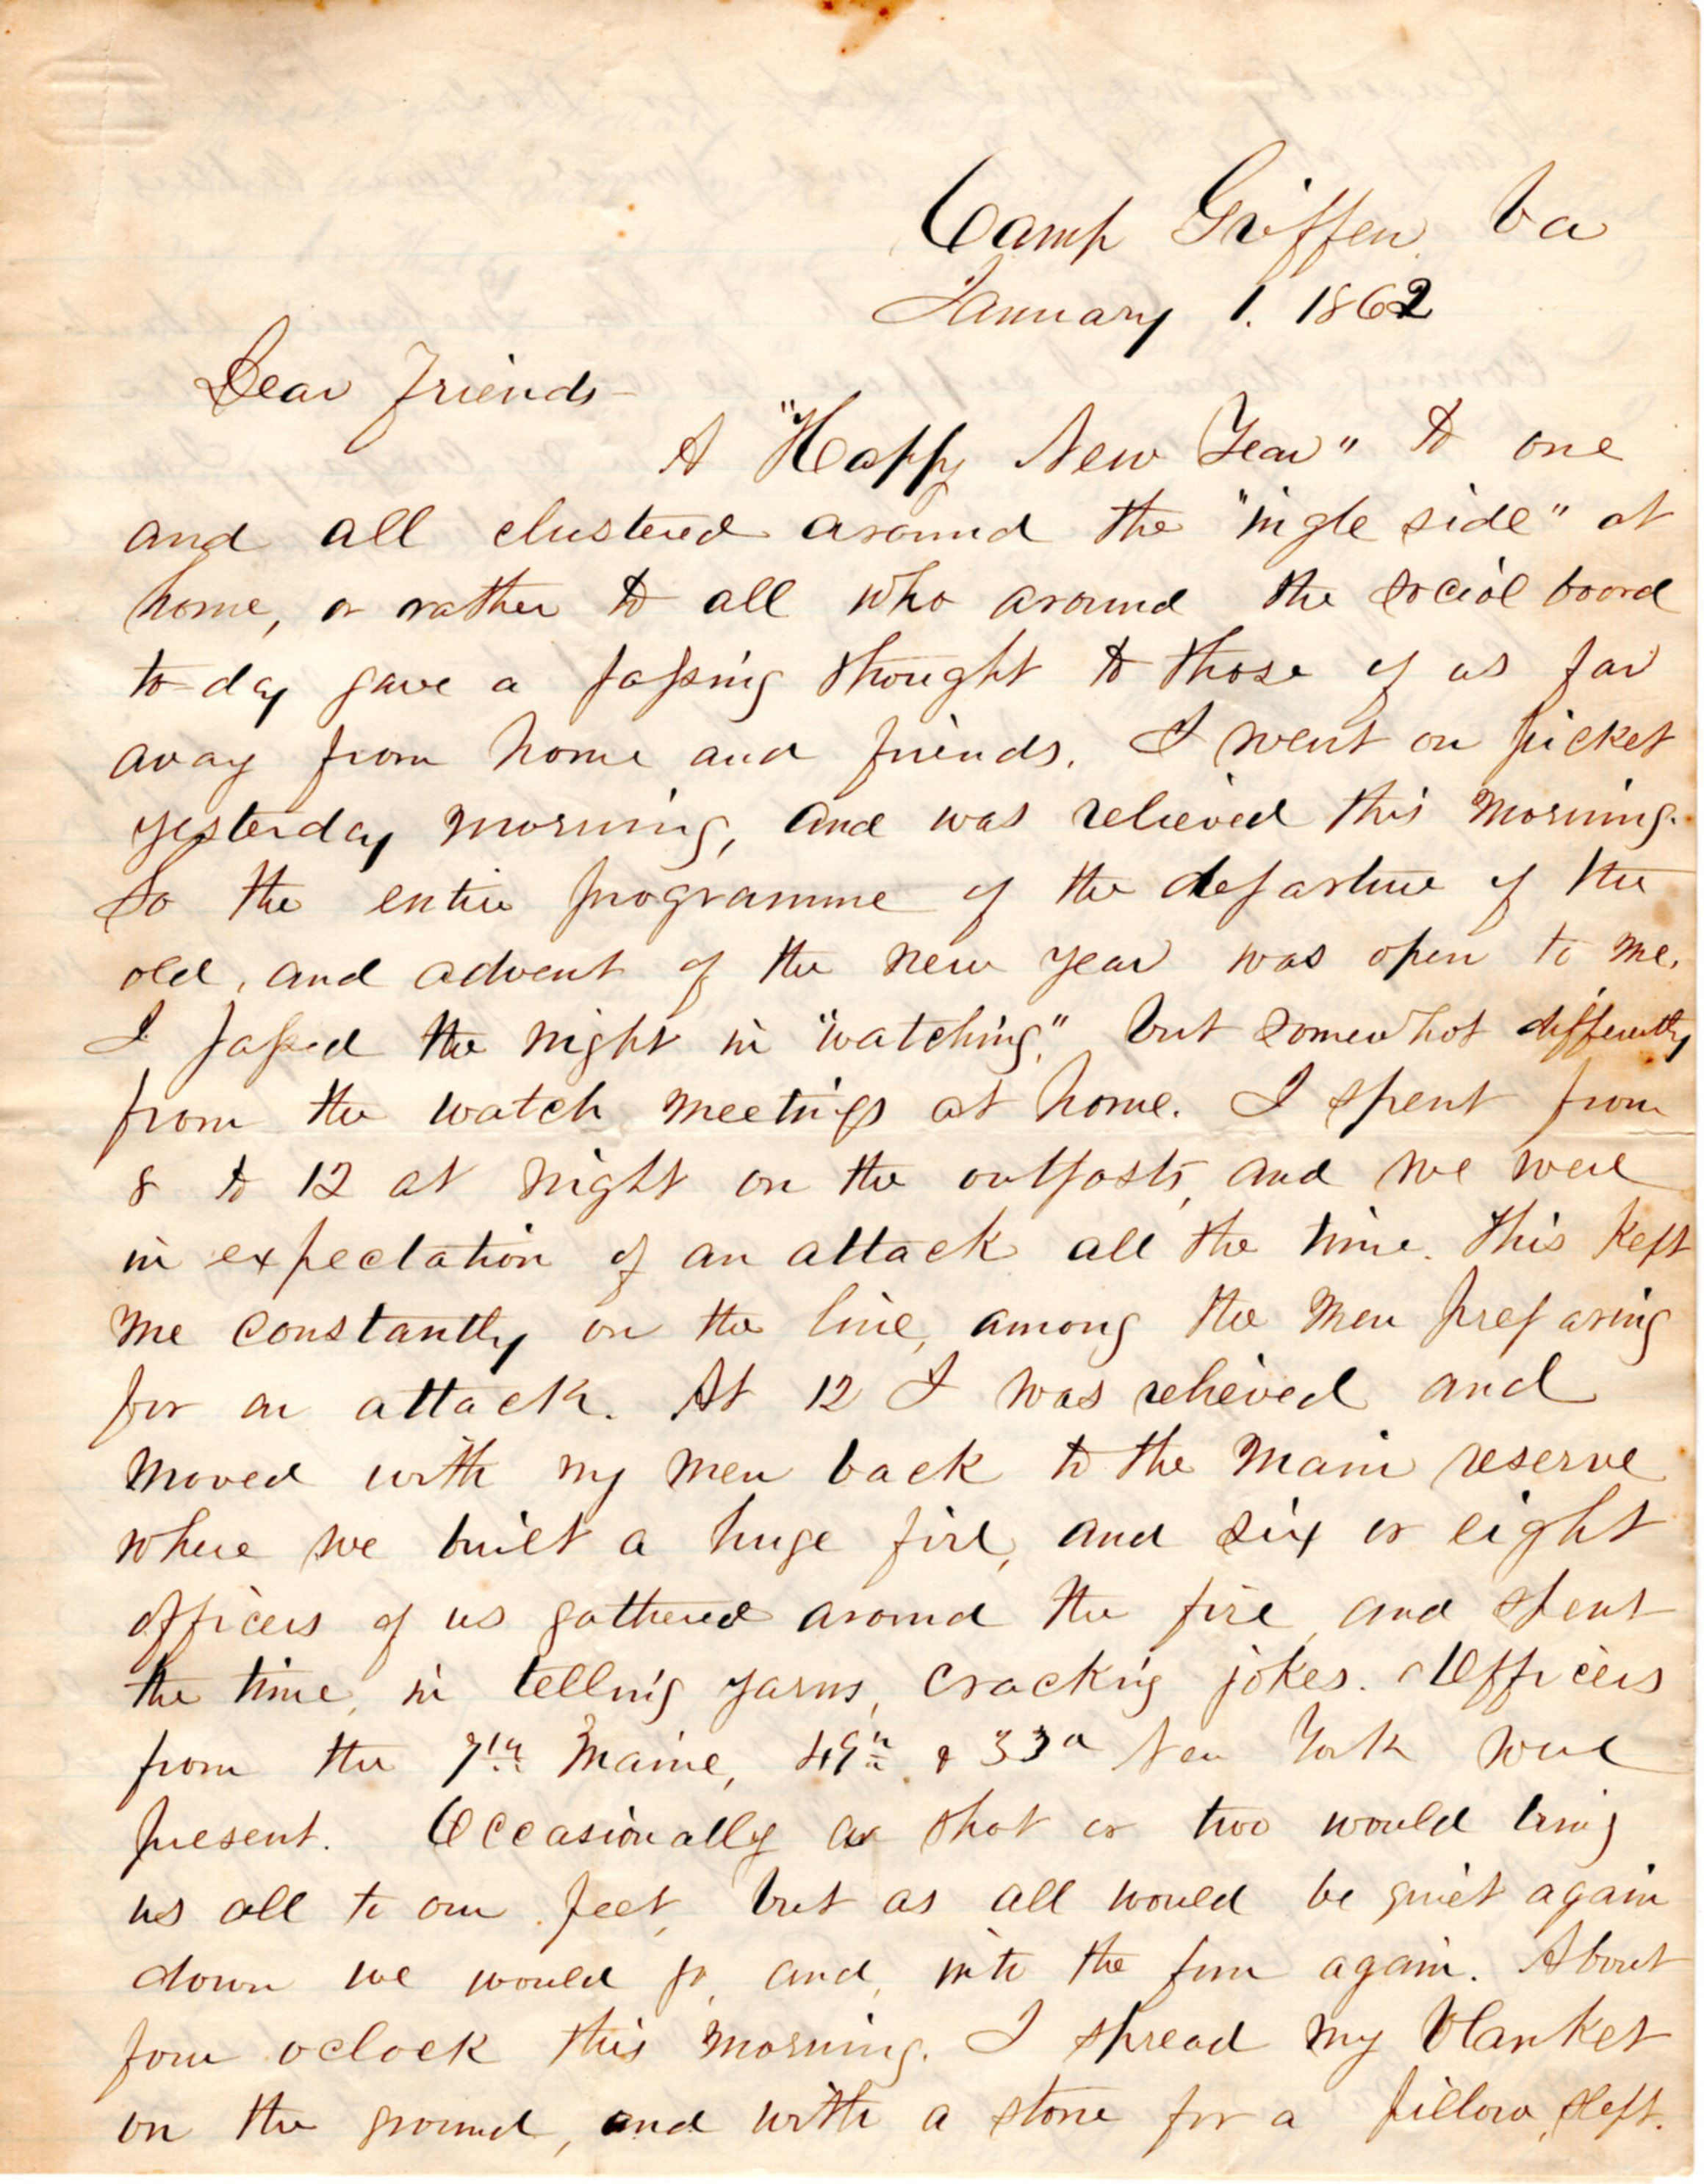 Camp Griffen Va
January 1. 1862
Dear Friends—
A "Happy New Year" to one
and all clustered around the "ingle side" at
home, or rather to all who around the social board
to-day gave a passing thought to those of us far
away from home and friends. I went on picket
yesterday morning, and was relieved this morning.
So the entire programme of the departure of the
old, and advent of the new year was open to me.
I passed the night in "watching", but somewhat differently
from the watch meetings at home. I spent from
8 to 12 at night on the outposts, and we were
in expectation of an attack all the time. This kept
me constantly on the line, among the men preparing
for an attack. At 12 I was relieved and
moved with my men back to the main reserve
where we built a huge fire, and six or eight
officers of us gathered around the fire, and spent
the time, in telling yarns, cracking jokes. Officers
from the 7th Maine, 49th & 33d New York were
present. Occasionally a shot or two would bring
us all to our feet, but as all would be quiet again
down we would go, and, into the fun again. About
four oclock this morning. I spread my blanket
on the ground, and with a stone for a pillow, slept.